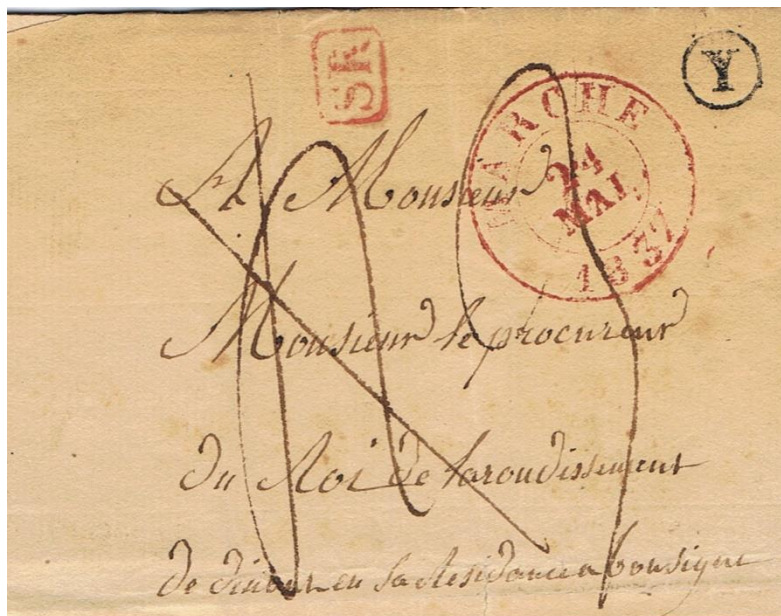 SR
Y
MARCHE
24
MAI
1837
A Monsieur
Monsieur le procureur
du Roi de larondissement
de dinant en sa Residance a bonsigne